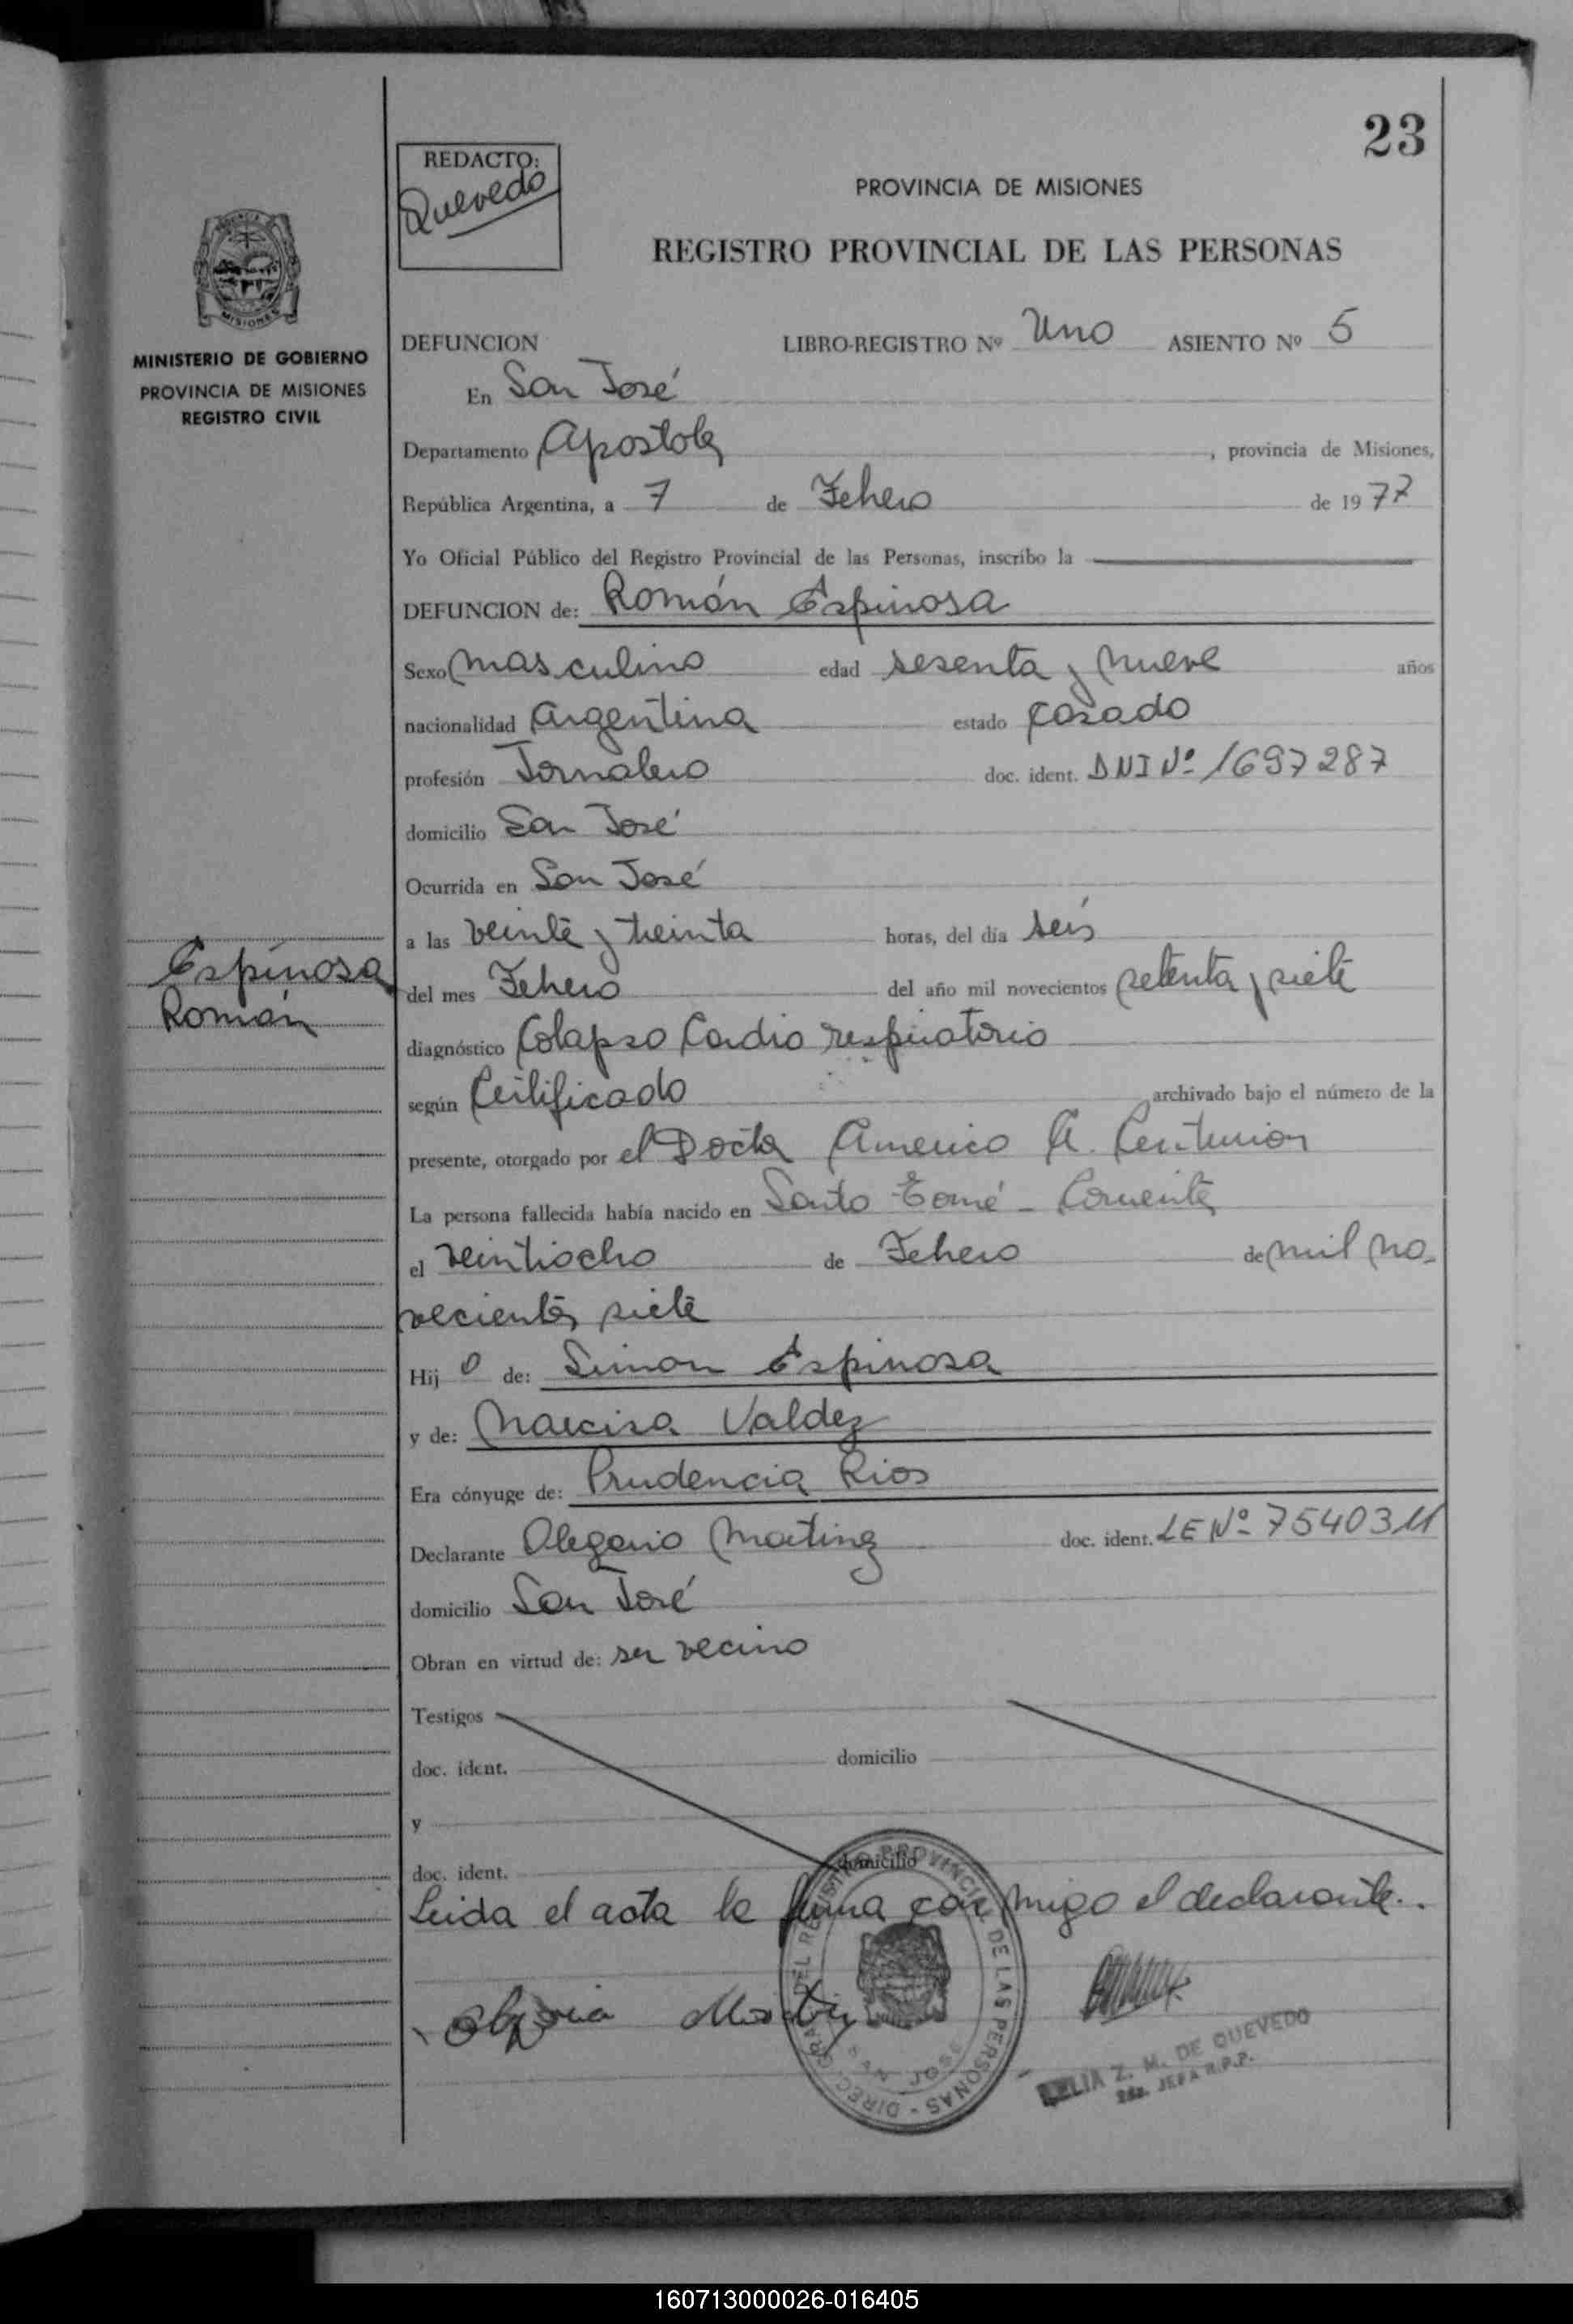 23
REDACTO:
Quevedo
PROVINCIA DE MISIONES
REGISTRO PROVINCIAL DE LAS PERSONAS
MISIONES
MINISTERIO DE GOBIERNO
PROVINCIA DE MISIONES
REGISTRO CIVIL
DEFUNCION LIBRO-REGISTRO Nº Uno ASIENTO Nº 5
En San José
Departamento Apostoles, provincia de Misiones,
República Argentina, a 7 de Febrero de 1977
Yo Oficial Público del Registro Provincial de las Personas, inscribo la
DEFUNCION de: Román Espinosa
Sexo masculino edad sesenta y nueve años
nacionalidad Argentina estado Casado
profesión Jornalero doc. ident. DNI Nº 1697287
domicilio San José
Ocurrida en San José
a las veinte y treinta horas, del día seis
Espinosa
Román
del mes Febrero del año mil novecientos setenta y siete
diagnóstico Colapso Cardio respiratorio
según Certificado archivado bajo el número de la
presente, otorgado por el Doctor Americo A. Centurion
La persona fallecida había nacido en Santo Tomé - Corrientes
el veintiocho de Febrero de mil no-
vecientos siete
Hijo de: Simon Espinosa
y de: Narcisa Valdez
Era cónyuge de: Prudencia Rios
Declarante Olegario Martinez doc. ident. LE Nº 7540311
domicilio San José
Obran en virtud de: ser vecino
Testigos
doc. ident. domicilio
y
doc. ident. domicilio
Leida el acta la firma conmigo el declarante.
REGISTRO PROVINCIAL DE LAS PERSONAS - DIREC. GRAL DEL
SAN JOSE
Z. M. DE QUEVEDO
JEFA R.P.P.
160713000026-016405